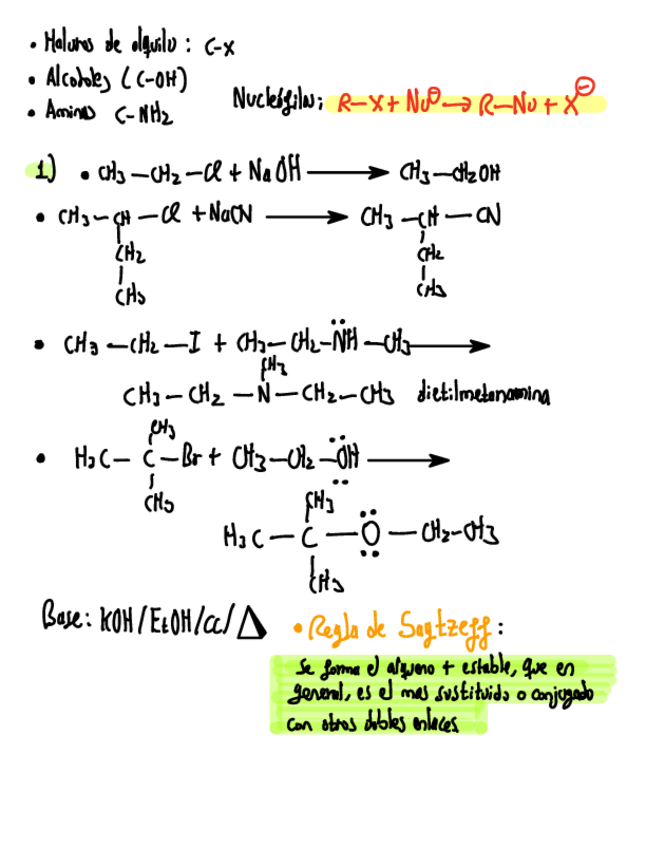 • Haluros de alquilo : C-X
• Alcoholes (C-OH)
• Aminas C-NH2
Nucleófilos: R-X + Nu⊖ → R-Nu + X⊖
1) • CH3-CH2-Cl + NaOH → CH3-CH2OH
• CH3-CH-Cl + NaCN → CH3-CH-CN
CH2 CH2
CH3 CH3
• CH3-CH2-I + CH3-CH2-NH-CH3 →
CH3
CH3-CH2-N-CH2-CH3 dietilmetanamina
CH3
• H3C-C-Br + CH3-CH2-OH →
CH3
CH3
H3C-C-O-CH2-CH3
CH3
Base: KOH/EtOH/cc/Δ
• Regla de Saytzeff:
Se forma el alqueno + estable, que en
general, es el mas sustituido o conjugado
con otros dobles enlaces